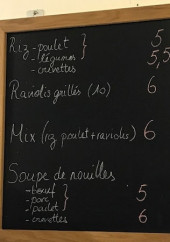 Riz - poulet } 5
- légumes 5,5
- crevettes
Raviolis grillés (10) 6
Mix (riz poulet + raviolis) 6
Soupe de nouilles
- boeuf }
- porc 5
- poulet
- crevettes 6